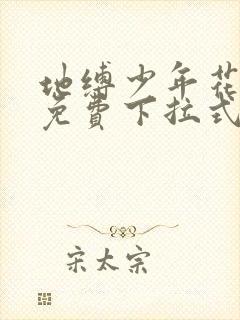 地缚少年花
免费下拉式
宋太宗